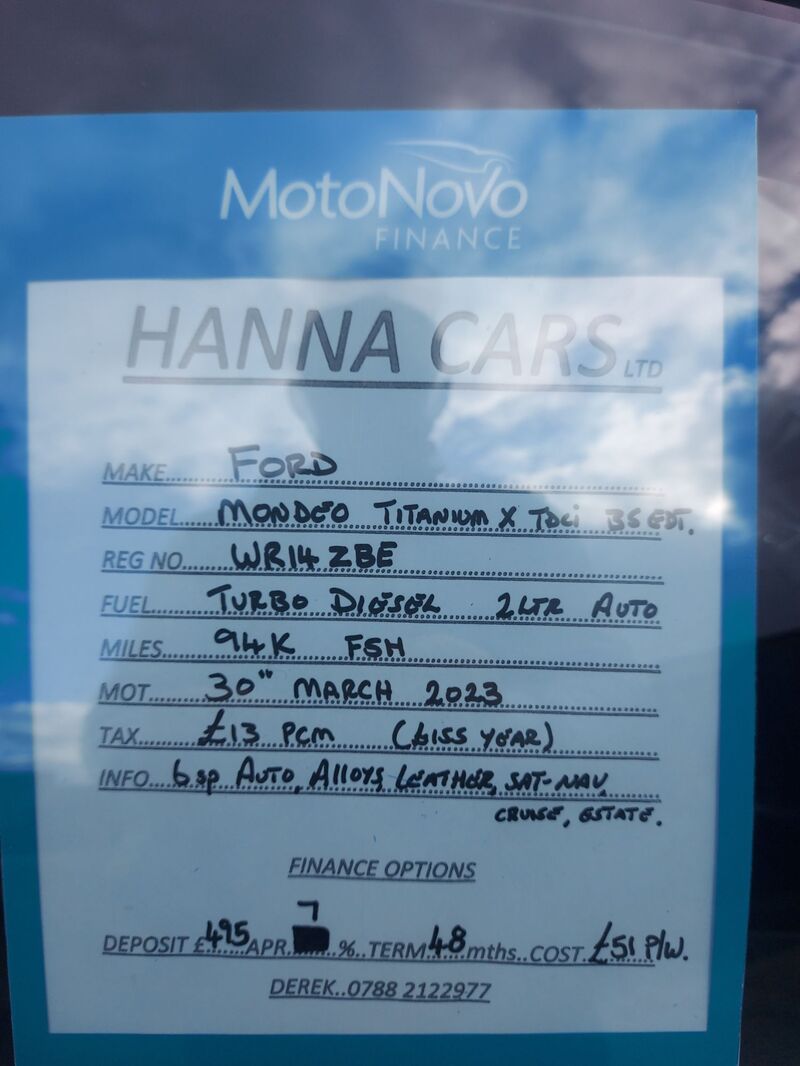 MotoNovo
FINANCE
HANNA CARS LTD
MAKE.....FORD
MODEL....MONDEO TITANIUM X TDCi BS EDT.
REG NO....WR14 ZBE
FUEL.....TURBO DIESEL 2LTR AUTO
MILES.....94K FSH
MOT.....30" MARCH 2023
TAX.....£13 PCM (£155 YEAR)
INFO...6 sp AUTO, ALLOYS, LEATHER, SAT-NAV,
CRUISE, ESTATE.
FINANCE OPTIONS
7
DEPOSIT £495 APR......%..TERM 48 mths..COST.£51 P/W.
DEREK..0788 2122977